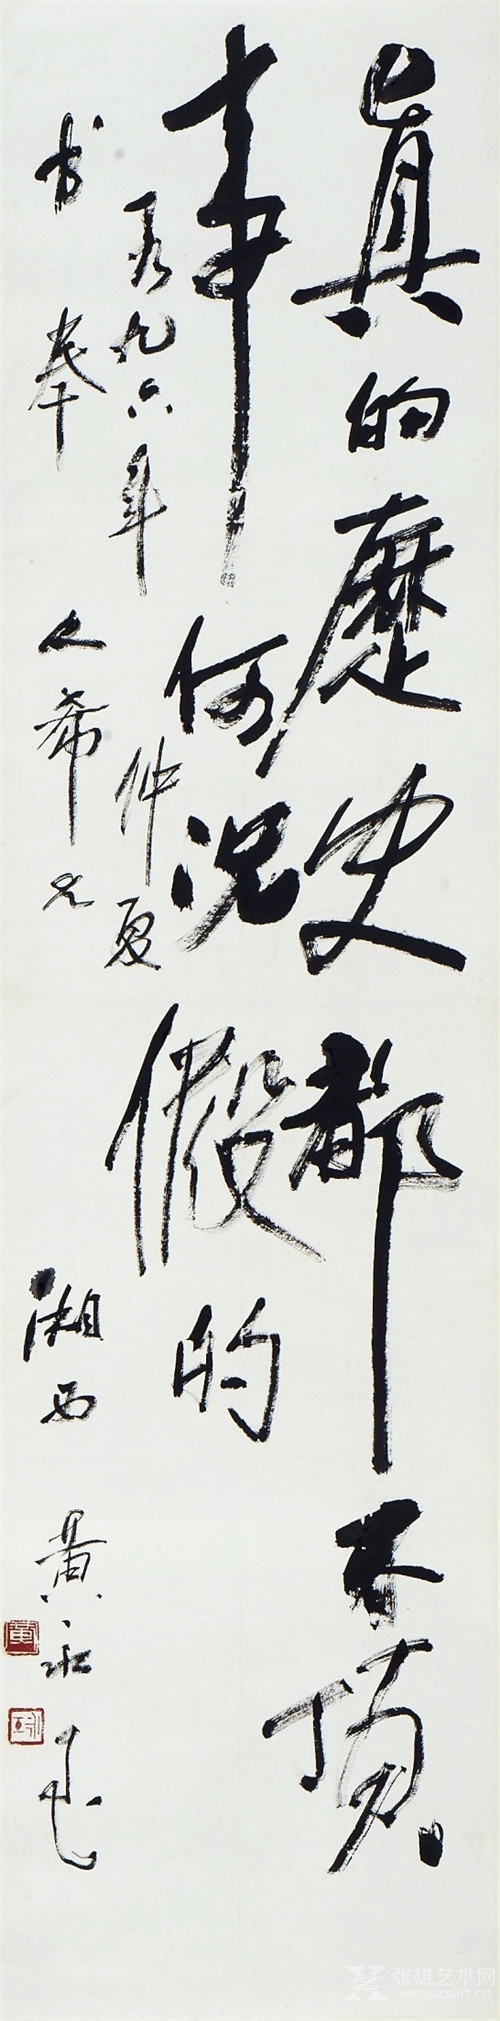 真的歷史都不頂
事何況假的
一九九六年仲夏
书奉希兄湘西黄永玉
张雄艺术网
www.zxart.cn